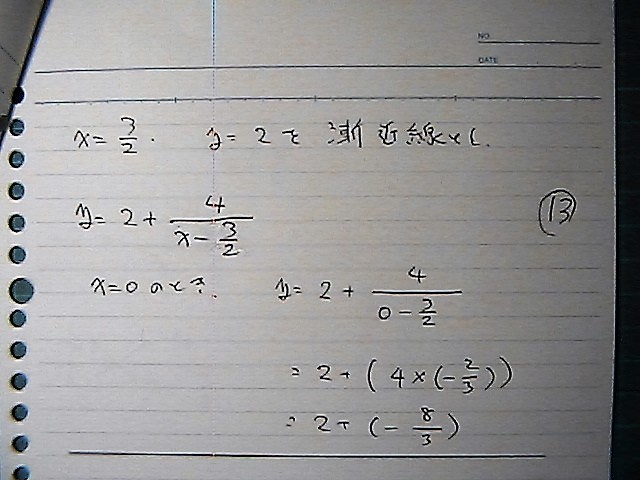 NO.
DATE
x = 3/2 . y = 2 を 漸近線とし.
y = 2 + 4/(x - 3/2)
⑬
x=0 のとき. y = 2 + 4/(0 - 3/2)
= 2 + (4 × (-2/3))
= 2 + (- 8/3)